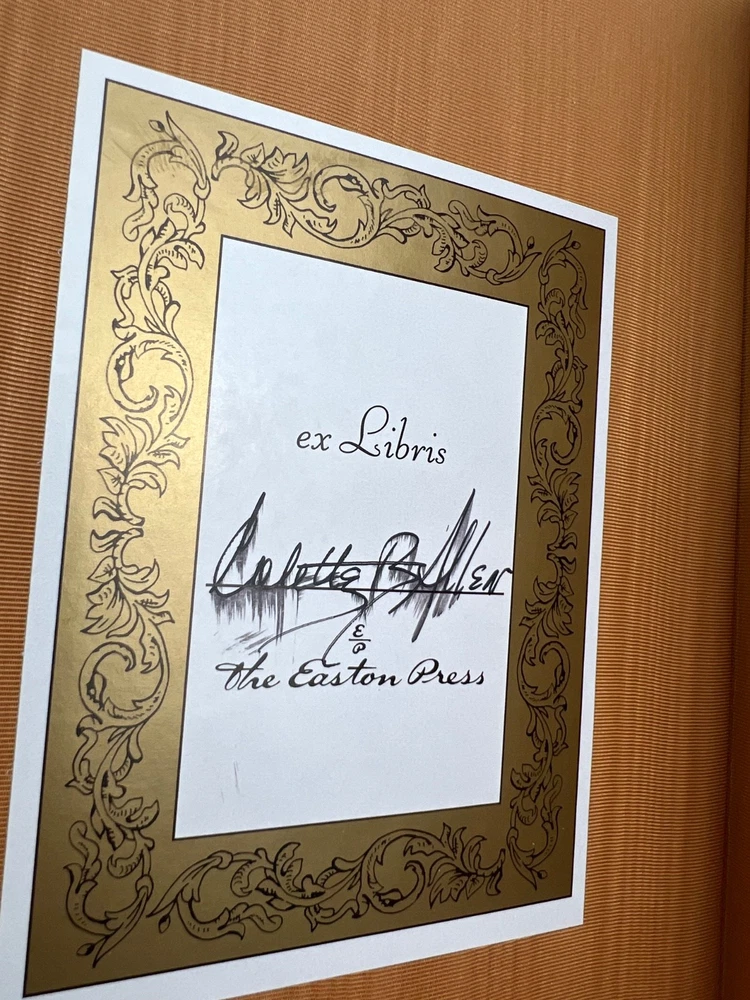 ex Libris
Colette
E
P
The Easton Press